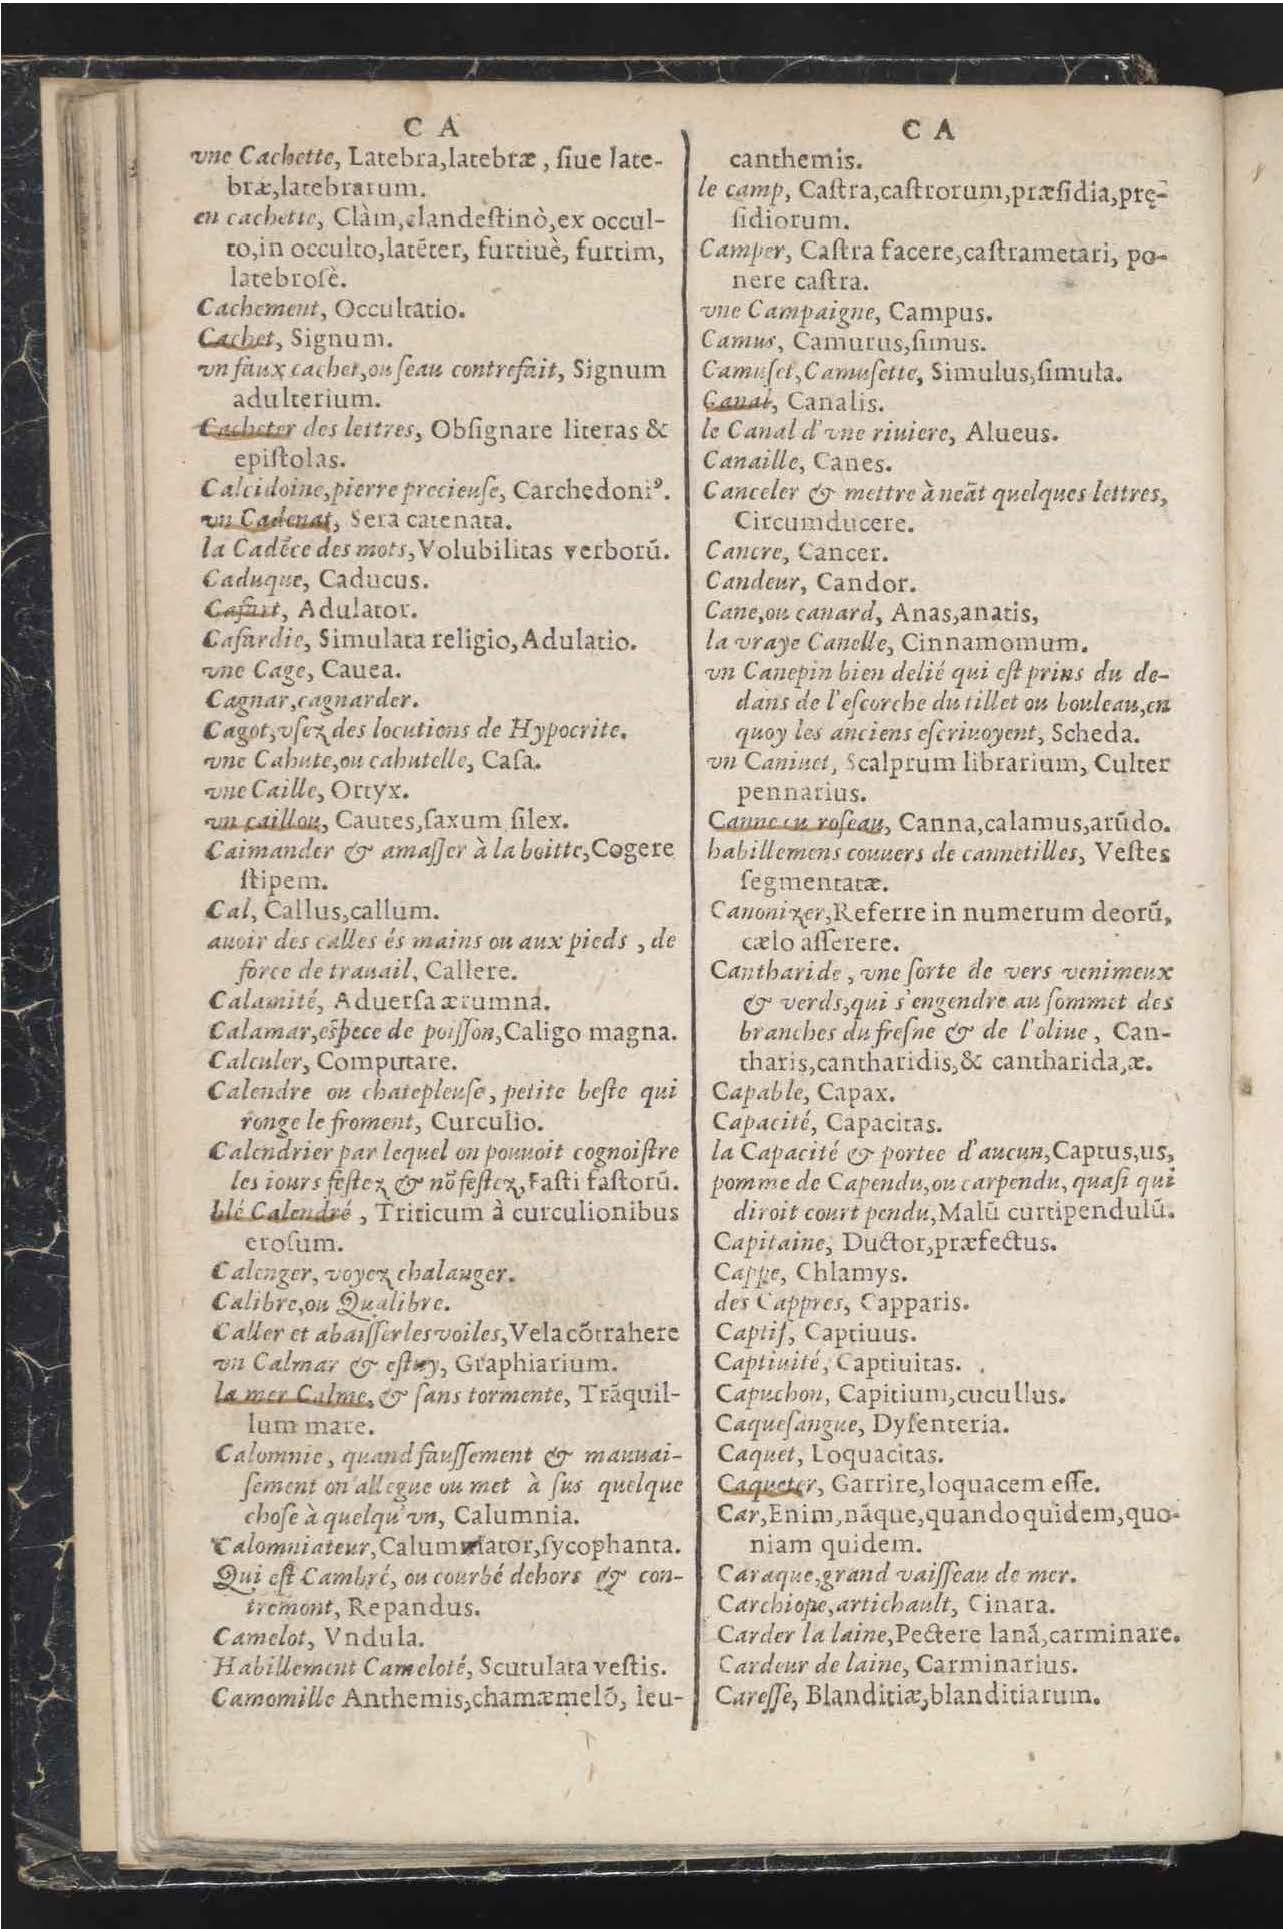 C A
vne Cachette, Latebra,latebræ, ſiue late-
bræ,latebrarum.
en cachette, Clàm,clandeſtinò,ex occul-
to,in occulto,latẽter, furtiuè, furtim,
latebroſè.
Cachement, Occultatio.
Cachet, Signum.
vn faux cachet,ou ſeau contrefait, Signum
adulterium.
Cacheter des lettres, Obſignare literas &
epiſtolas.
Calcidoine,pierre precieuſe, Carchedoniꝰ.
vn Cadenat, Sera catenata.
la Cadẽce des mots,Volubilitas verborũ.
Caduque, Caducus.
Cafart, Adulator.
Cafardie, Simulata religio,Adulatio.
vne Cage, Cauea.
Cagnar,cagnarder.
Cagot,vſez des locutions de Hypocrite.
vne Cahute,ou cahutelle, Caſa.
vne Caille, Ortyx.
vn caillou, Cautes,ſaxum ſilex.
Caimander & amaſſer à la boitte,Cogere
ſtipem.
Cal, Callus,callum.
auoir des calles és mains ou aux pieds , de
force de trauail, Callere.
Calamité, Aduerſa ærumna.
Calamar,eſpece de poiſſon,Caligo magna.
Calculer, Computare.
Calendre ou chatepleuſe, petite beſte qui
ronge le froment, Curculio.
Calendrier par lequel on pouuoit cognoiſtre
les iours feſtez & nõ feſtez,Faſti faſtorũ.
blé Calendré , Triticum à curculionibus
eroſum.
Calenger, voyez chalanger.
Calibre,ou Qualibre.
Caller et abaiſſer les voiles,Vela cõtrahere
vn Calmar & eſtuy, Graphiarium.
la mer Calme, & ſans tormente, Trãquil-
lum mare.
Calomnie, quand fauſſement & mauuai-
ſement on allegue ou met à ſus quelque
choſe à quelqu'vn, Calumnia.
Calomniateur,Calumniator,ſycophanta.
Qui eſt Cambré, ou courbé dehors & con-
tremont, Repandus.
Camelot, Vndula.
Habillement Cameloté, Scutulata veſtis.
Camomille Anthemis,chamæmelõ, leu-
C A
canthemis.
le camp, Caſtra,caſtrorum,præſidia,prę-
ſidiorum.
Camper, Caſtra facere,caſtrametari, po-
nere caſtra.
vne Campaigne, Campus.
Camus, Camurus,ſimus.
Camuſet,Camuſette, Simulus,ſimula.
Canal, Canalis.
le Canal d'vne riuiere, Alueus.
Canaille, Canes.
Canceler & mettre à neãt quelques lettres,
Circumducere.
Cancre, Cancer.
Candeur, Candor.
Cane,ou canard, Anas,anatis,
la vraye Canelle, Cinnamomum.
vn Canepin bien delié qui eſt prins du de-
dans de l'eſcorche du tillet ou bouleau,en
quoy les anciens eſcriuoyent, Scheda.
vn Caniuet, Scalprum librarium, Culter
pennarius.
Canne ou roſeau, Canna,calamus,arũdo.
habillemens couuers de cannetilles, Veſtes
ſegmentatæ.
Canonizer,Referre in numerum deorũ,
cælo aſſerere.
Cantharide , vne ſorte de vers venimeux
& verds,qui s'engendre au ſommet des
branches du freſne & de l'oliue , Can-
tharis,cantharidis,& cantharida,æ.
Capable, Capax.
Capacité, Capacitas.
la Capacité & portee d'aucun,Captus,us,
pomme de Capendu,ou carpendu, quaſi qui
diroit court pendu,Malũ curtipendulũ.
Capitaine, Ductor,præfectus.
Cappe, Chlamys.
des Cappres, Capparis.
Captif, Captiuus.
Captiuité, Captiuitas.
Capuchon, Capitium,cucullus.
Caqueſangue, Dyſenteria.
Caquet, Loquacitas.
Caqueter, Garrire,loquacem eſſe.
Car,Enim,nãque,quandoquidem,quo-
niam quidem.
Caraque,grand vaiſſeau de mer.
Carchiope,artichault, Cinara.
Carder la laine,Pectere lanã,carminare.
Cardeur de laine, Carminarius.
Careſſe, Blanditiæ,blanditiarum.